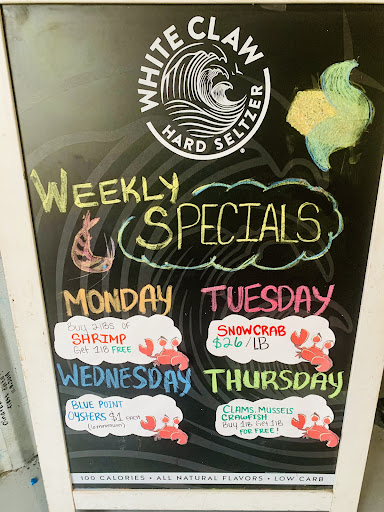 WHITE CLAW
HARD SELTZER
WEEKLY
SPECIALS
MONDAY
Buy 2 lbs of
SHRIMP
Get 1 lb FREE
TUESDAY
SNOWCRAB
$26/LB
WEDNESDAY
BLUE POINT
OYSTERS $1 each
THURSDAY
CLAMS, MUSSELS
CRAWFISH
Buy 1 lb Get 1 lb
FOR FREE!
100 CALORIES • ALL NATURAL FLAVORS • LOW CARB